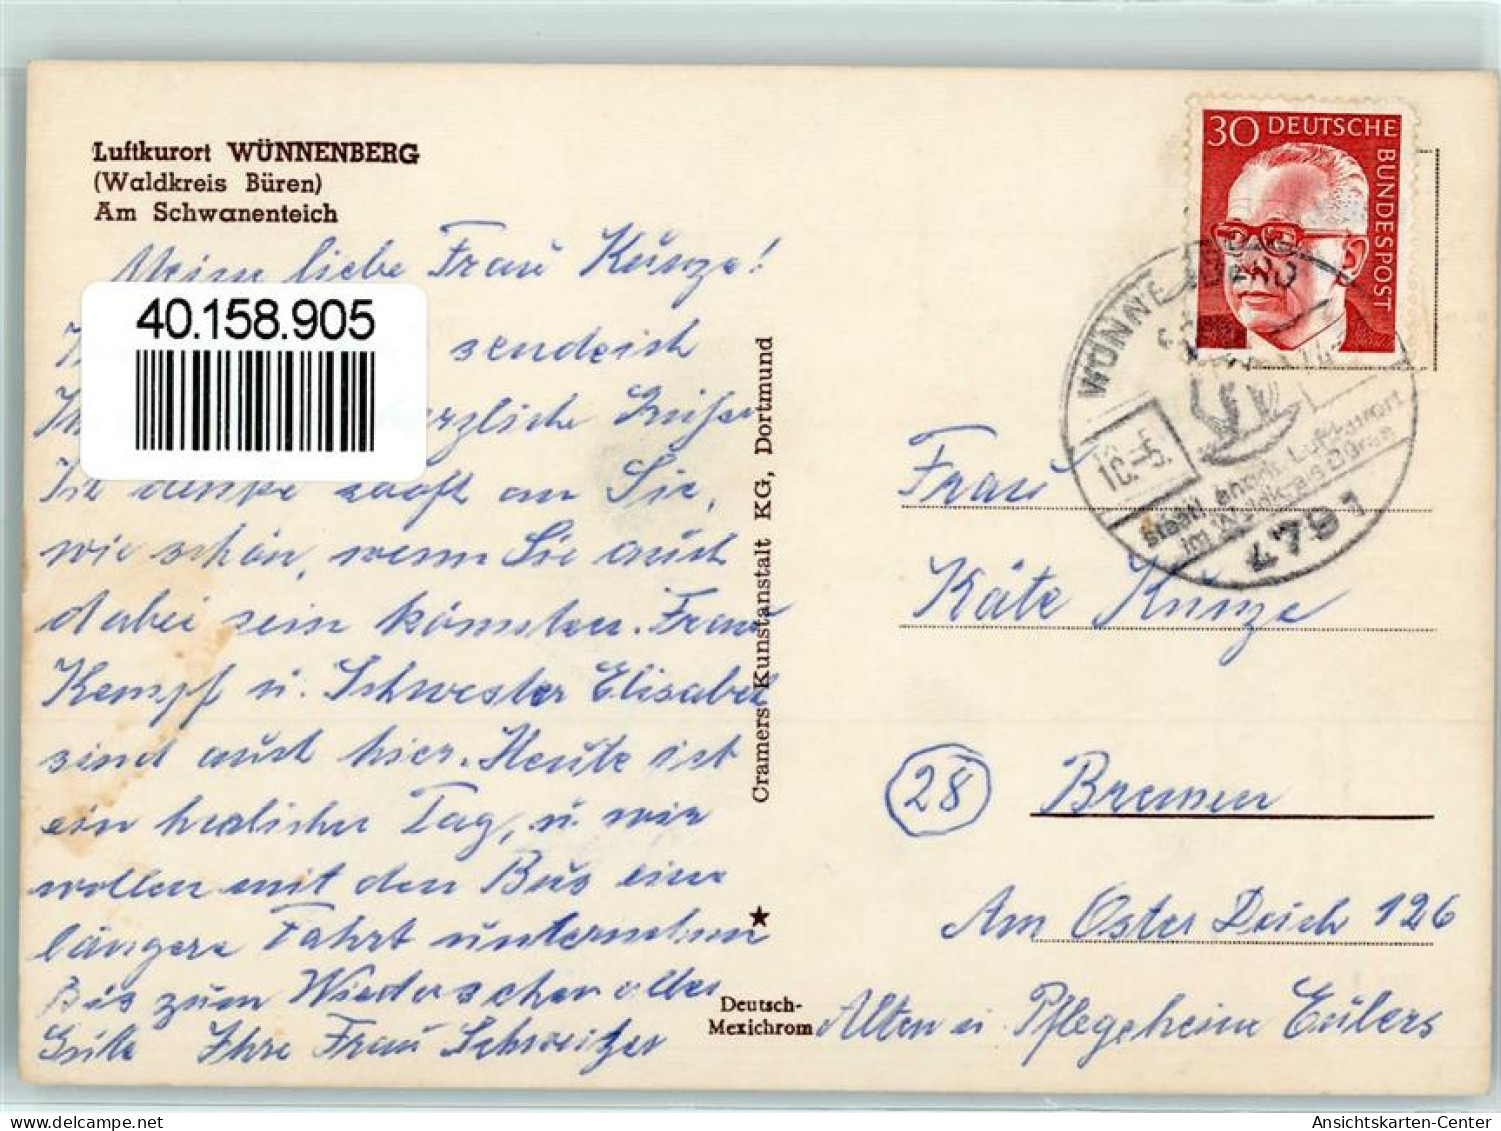 Luftkurort WÜNNENBERG
(Waldkreis Büren)
Am Schwanenteich
Meine liebe Frau Kunze!
40.158.905
sendeich
herzliche Grüße
Ich denke so oft an Sie,
wie schön, wenn Sie auch
dabei sein könnten. Frau
Kempf u. Schwester Elisabet
sind auch hier. Heute ist
ein herlicher Tag, u. wir
wollen mit den Bus eine
längere Fahrt unternehmen
Bis zum Wiedersehen alles
Gute Ihre Frau Schweitzer
Cramers Kunstanstalt KG, Dortmund
★
Deutsch-
Mexichrom
30 DEUTSCHE
BUNDESPOST
WÜNNENBERG
10.-5.
staatl. anerk. Luftkurort
im Waldkreis Büren
4791
Frau
Käte Kunze
28 Bremen
Am Oster Deich 126
Alten u Pflegeheim Eulers
Ansichtskarten-Center